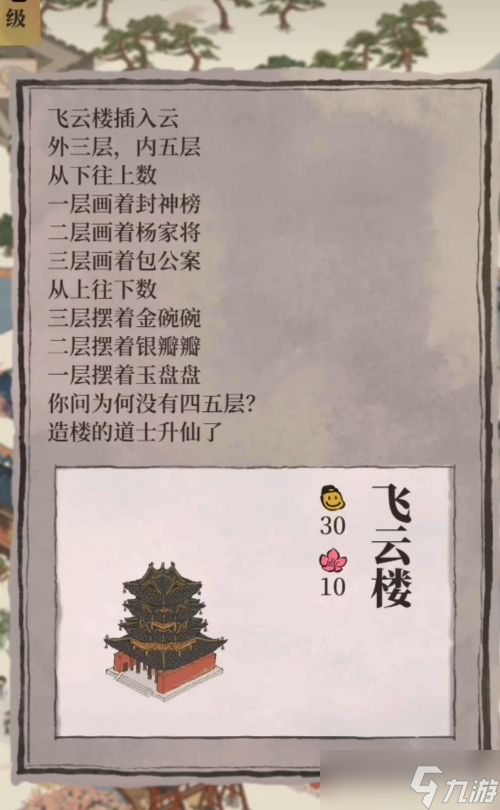 级
飞云楼插入云
外三层，内五层
从下往上数
一层画着封神榜
二层画着杨家将
三层画着包公案
从上往下数
三层摆着金碗碗
二层摆着银瓣瓣
一层摆着玉盘盘
你问为何没有四五层？
造楼的道士升仙了
飞云楼
30
10
九游